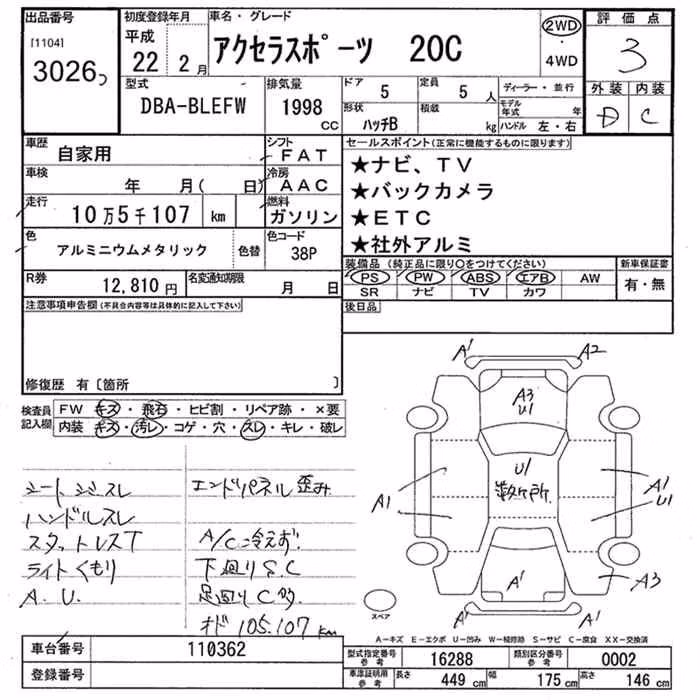 出品番号
[1104]
3026
初度登録年月
平成
22 2月
車名・グレード
アクセラスポーツ 20C
2WD
・
4WD
評価点
3
外装 内装
D C
型式
DBA-BLEFW
排気量
1998
CC
ドア 5
定員 5 人
形状 ハッチB
積載 kg
ディーラー・並行
モデル年式 年
ハンドル 左・右
車歴
自家用
シフト
FAT
車検
年 月( 日)
冷房
AAC
走行
10万5千107 km
燃料
ガソリン
色
アルミニウムメタリック
色替
色コード
38P
R券
12,810円
名変通知期限
月 日
セールスポイント(正常に機能するものに限ります)
★ナビ、TV
★バックカメラ
★ETC
★社外アルミ
装備品(純正品に限り○をつけてください)
PS PW ABS エアB AW
SR ナビ TV カワ
新車保証書
有・無
後日品
注意事項申告欄(不具合内容等は具体的に記入して下さい)
修復歴 有〔箇所 〕
検査員記入欄
FW キズ・飛石・ヒビ割・リペア跡・×要
内装 キズ・汚レ・コゲ・穴・スレ・キレ・破レ
ハンドルスレ
スタットレスT
ライトくもり
A.U.
エンドパネル 歪み
A/C冷えず.
下廻りS.C
足廻りC多
オド 105.107 km
A1 A2
A3
U1
U1
数ヶ所.
A1
A1
U1
A1
A3
A1
スペア
A-キズ E-エクボ U-凹み W-補修跡 S-サビ C-腐食 XX-交換済
車台番号
110362
登録番号
型式指定番号
参考
16288
類別区分番号
参考
0002
車庫証明用
参考
長さ 449 cm
幅 175 cm
高さ 146 cm